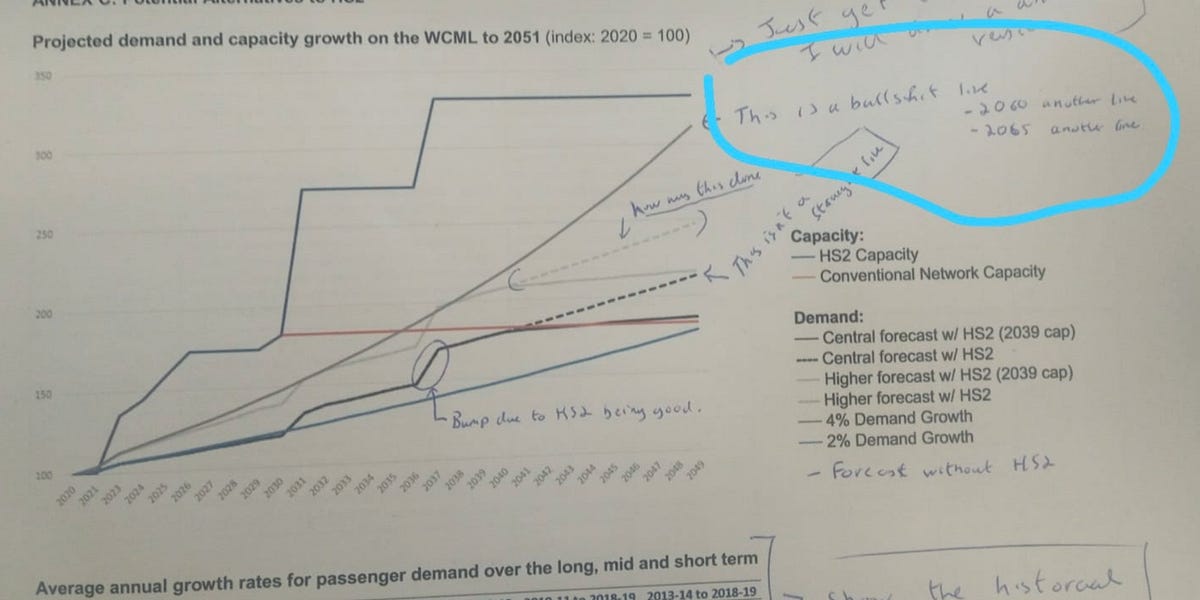 ANNEX C: Potential Alternatives to HS2
Just get
I will
Projected demand and capacity growth on the WCML to 2051 (index: 2020 = 100)
350
300
250
200
150
100
This is a bullshit line
- 2060 another line
- 2065 another line
how was this done
This isn't a
straight line
Bump due to HS2 being good.
2020 2021 2023 2024 2025 2026 2027 2028 2029 2030 2031 2032 2033 2034 2035 2036 2037 2038 2039 2040 2041 2042 2043 2044 2045 2046 2047 2048 2049
Capacity:
HS2 Capacity
Conventional Network Capacity
Demand:
Central forecast w/ HS2 (2039 cap)
Central forecast w/ HS2
Higher forecast w/ HS2 (2039 cap)
Higher forecast w/ HS2
4% Demand Growth
2% Demand Growth
- Forecast without HS2
Average annual growth rates for passenger demand over the long, mid and short term
2018-19 2013-14 to 2018-19
the historcal